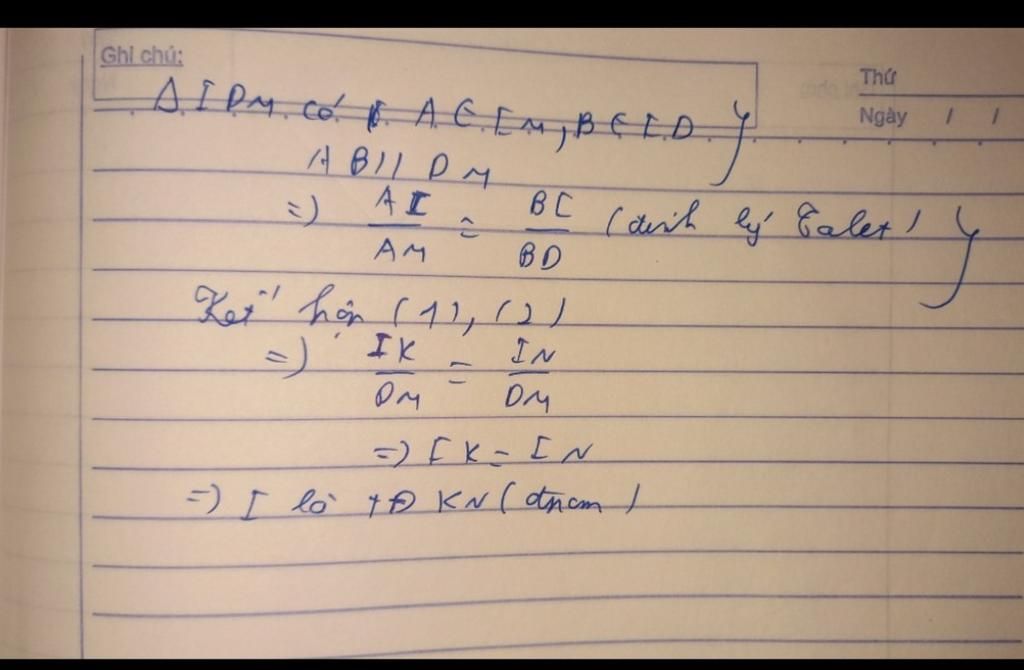 Ghi chú:
Thứ
Ngày / /
Δ IDM có A ∈ IM, B ∈ ID }
AB // DM
=> AI/AM = BI/BD (định lý Talet) }
Kết hợp (1), (2)
=> IK/DM = IN/DM
=> IK = IN
=> I là tĐ KN (đpcm)